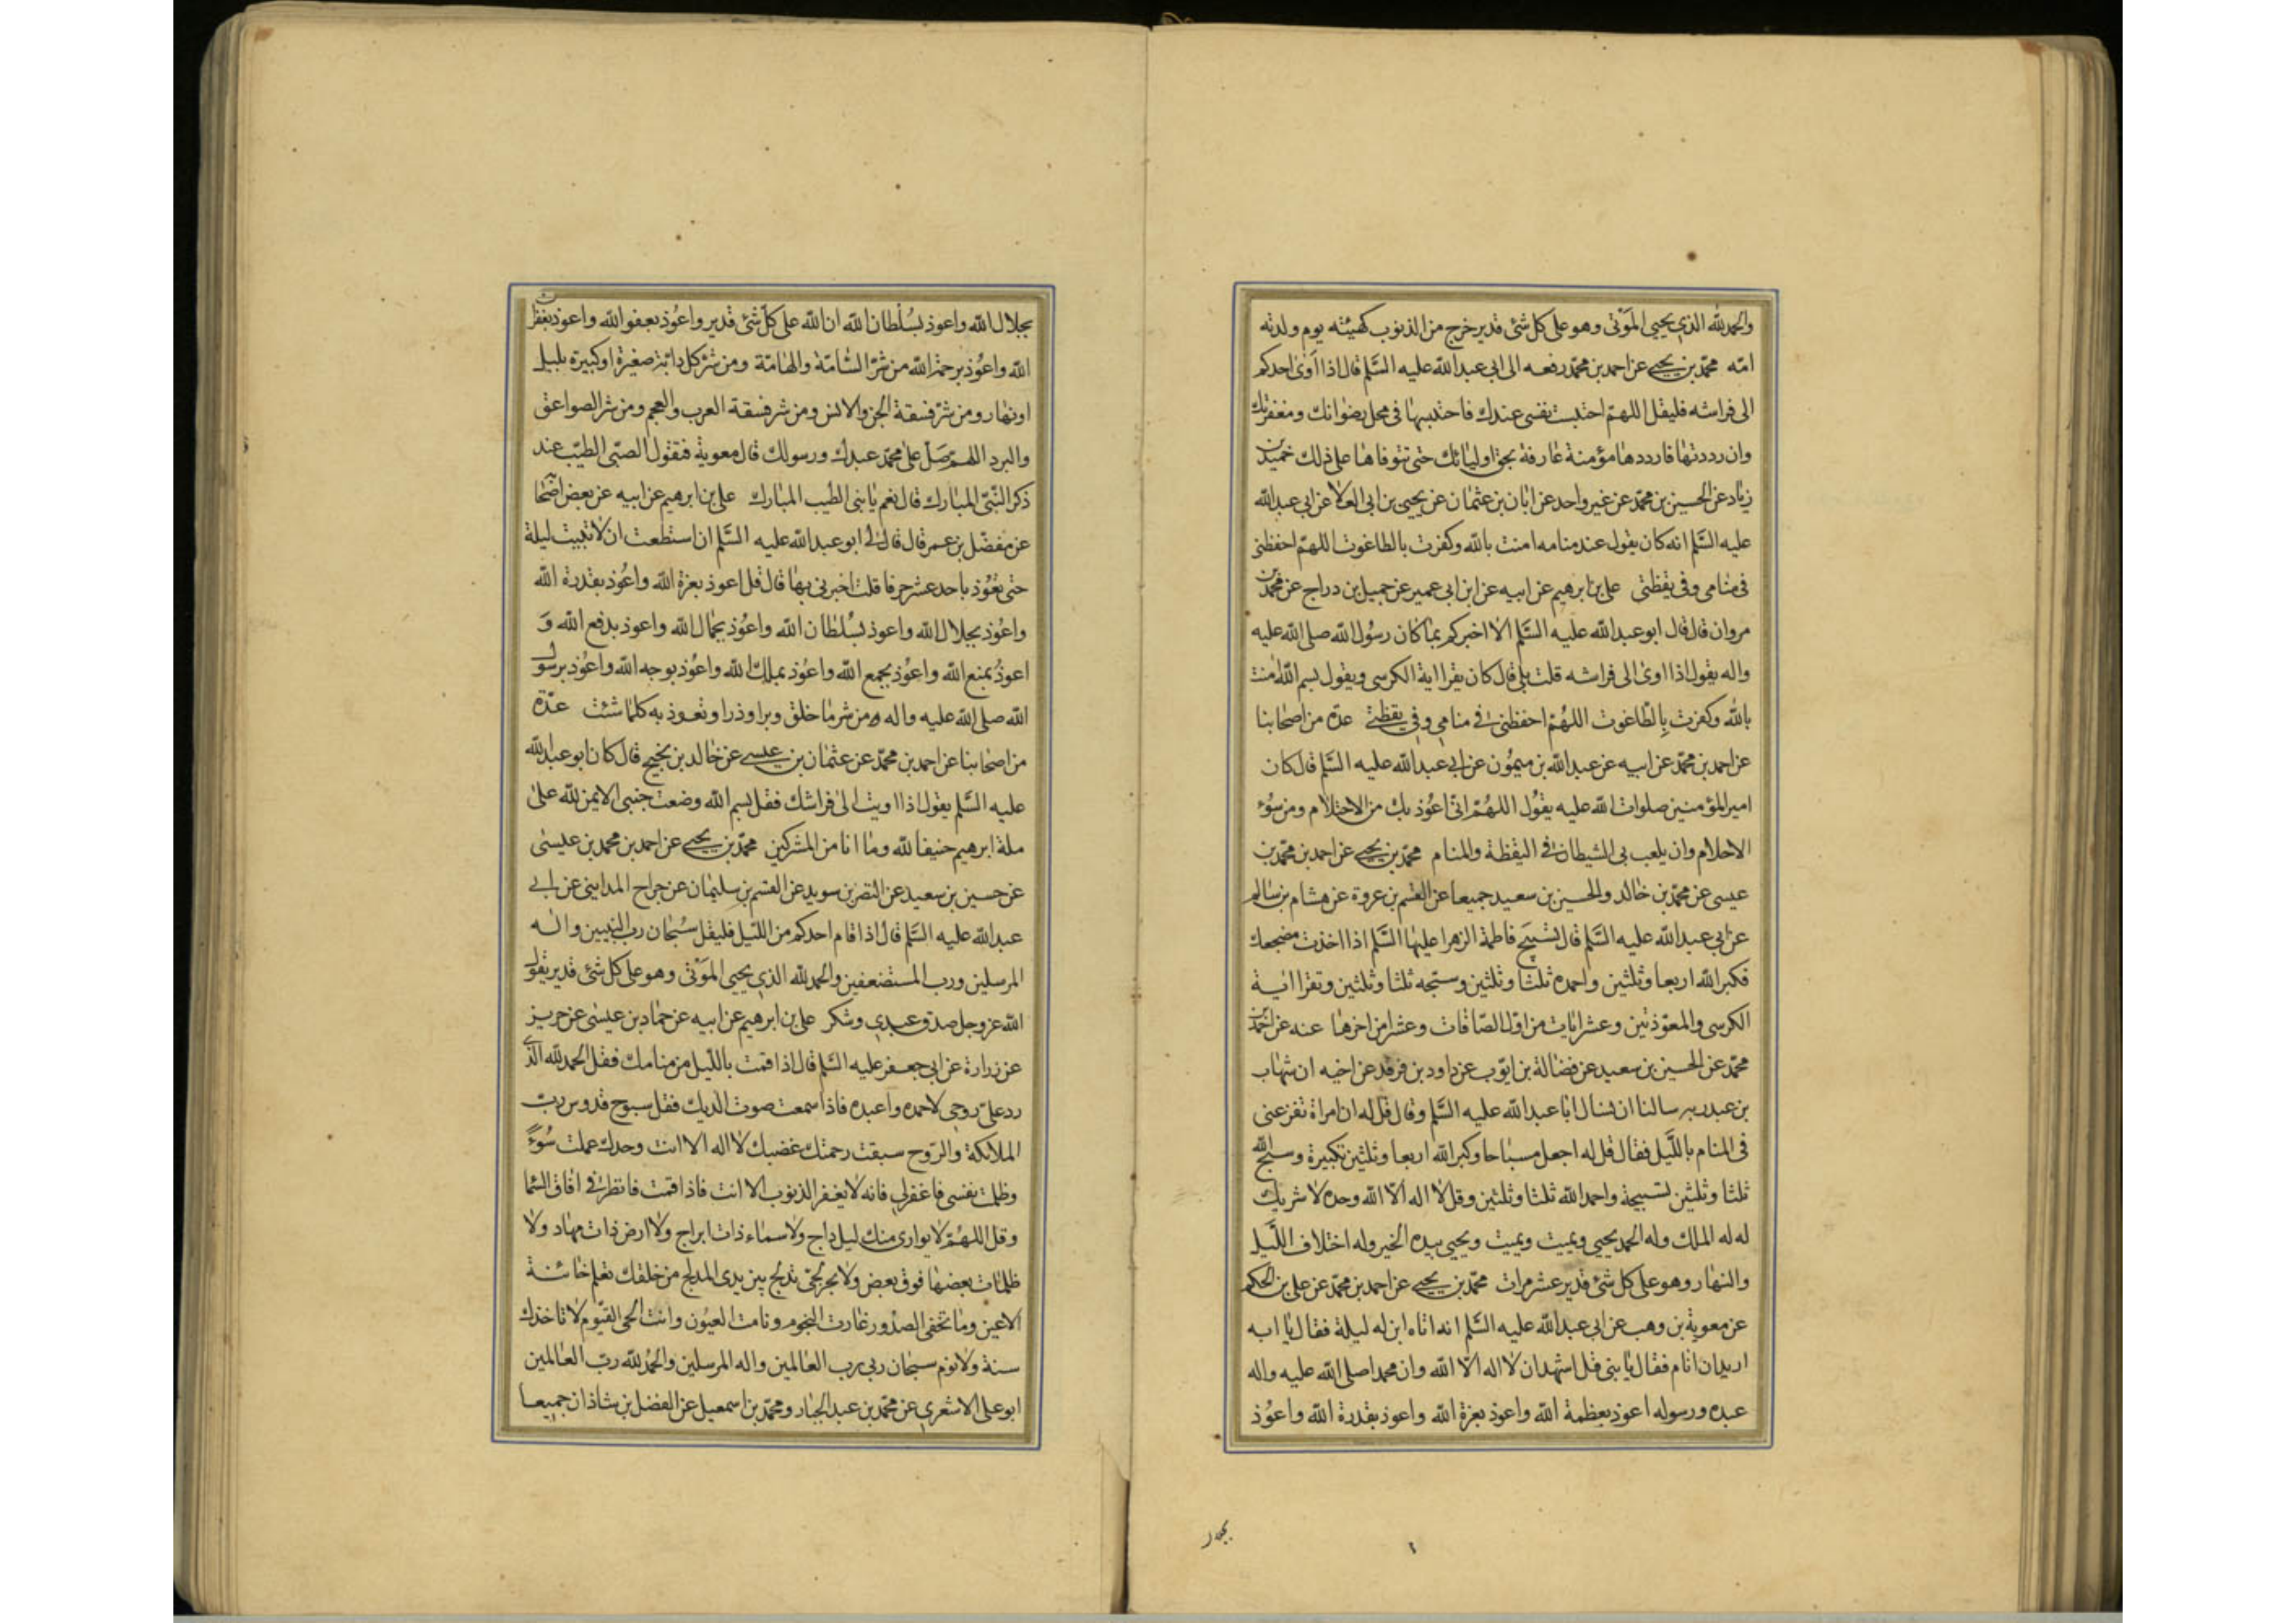 والحمدلله الذي يحيي الموتى وهو على كل شئ قدير خرج من الذنوب كهيئته يوم ولدته
امّه محمّد بن يحيى عن احمد بن محمّد رفعه الى ابي عبدالله عليه السّلم قال اذا آوى احدكم
الى فراشه فليقل اللهمّ احتبست نفسى عندك فاحتبسها فى محل رضوانك ومغفرتك
وان رددتها فارددها مؤمنة عارفة بحق اوليائك حتى تتوفاها على ذلك حميد بن
زياد عن الحسين بن محمّد عن غير واحد عن ابان بن عثمان عن يحيى بن ابى العلا عن ابى عبدالله
عليه السّلم انه كان يقول عند منامه امنت بالله وكفرت بالطاغوت اللهمّ احفظنى
فى منامى وفى يقظتى على بن ابرهيم عن ابيه عن ابن ابى عمير عن جميل بن دراج عن محمّد بن
مروان قال قال ابوعبدالله عليه السّلم الا اخبركم بما كان رسول الله صلى الله عليه
واله يقول اذا اوى الى فراشه قلت بلى قال كان يقرا اية الكرسى ويقول بسم الله امنت
بالله وكفرت بالطّاغوت اللهُمّ احفظنى فى منامى وفى يقظتى عدّة من اصحابنا
عن احمد بن محمّد عن ابيه عن عبدالله بن ميمون عن ابى عبدالله عليه السّلم قال كان
امير المؤمنين صلوات الله عليه يقول اللهُمّ انّى اعوذ بك من الاحتلام ومن سُوء
الاحلام وان يلعب بى الشيطان فى اليقظة والمنام محمّد بن يحيى عن احمد بن محمّد بن
عيسى عن محمّد بن خالد والحسين بن سعيد جميعا عن القسم بن عروة عن هشام بن سالم
عن ابى عبدالله عليه السّلم قال تسبيح فاطمة الزهرا عليها السّلم اذا اخذت مضجعك
فكبر الله اربعا وثلثين واحمده ثلثا وثلثين وسبّحه ثلثا وثلثين وتقرا اية
الكرسى والمعوّذتين وعشر ايات من اوّل الصّافات وعشرا من اخرها عنه عن احمد بن
محمّد عن الحسين بن سعيد عن فضالة بن ايّوب عن داود بن فرقد عن اخيه ان شهاب
بن عبد ربه سالنا ان نسال ابا عبدالله عليه السّلم وقال قل له ان امراة تفزعنى
فى المنام بالليل فقال قل له اجعل مسباحا وكبر الله اربعا وثلثين تكبيرة وسبّح الله
ثلثا وثلثين تسبيحة واحمد الله ثلثا وثلثين وقل لا اله الّا الله وحده لا شريك
له له الملك وله الحمد يحيى ويميت ويميت ويحيى بيده الخير وله اختلاف اللّيل
والنهار وهو على كل شئ قدير عشر مرات محمّد بن يحيى عن احمد بن محمّد عن على بن الحكم
عن معوية بن وهب عن ابى عبدالله عليه السّلم انه اتاه ابن له ليلة فقال يا ابه
اريد ان انام فقال يا بنى قل اشهد ان لا اله الّا الله وان محمدا صلى الله عليه واله
عبده ورسوله اعوذ بعظمة الله واعوذ بعزة الله واعوذ بقدرة الله واعوُذ
بجلال الله واعوذ بسُلطان الله ان الله على كلّ شئ قدير واعُوذ بعفو الله واعوذ بغفران
الله واعوُذ برحمة الله من شرّ السّامّة والهامّة ومن شرّ كل دابّة صغيرة او كبيرة بليل
او نهار ومن شرّ فسقة الجن والانس ومن شر فسقة العرب والعجم ومن شر الصواعق
والبرد اللهمّ صَلّ على محمّد عبدك ورسولك قال معوية فيقول الصبّى الطيّب عند
ذكر النّبّى المبارك قال نعم يا بنى الطيب المبارك على بن ابرهيم عن ابيه عن بعض اصحابه
عن مفضّل بن عمر قال قال لى ابو عبدالله عليه السّلم ان استطعت ان لا تبيت ليلة
حتى تعُوّذ باحد عشر حرفا قلت اخبرنى بها قال قل اعوذ بعزة الله واعُوذ بقدرة الله
واعُوذ بجلال الله واعوذ بسُلطان الله واعُوذ بجمال الله واعوذ بدفع الله وَ
اعوذُ بمنع الله واعُوذ بجمع الله واعُوذ بملك الله واعُوذ بوجه الله واعُوذ برسول
الله صلى الله عليه واله من شر ما خلق وبرا وذرا وتعوذ به كلما شئت عدّة
من اصحابنا عن احمد بن محمّد عن عثمان بن عيسى عن خالد بن نجيح قال كان ابوعبدالله
عليه السّلم يقول اذا اويت الى فراشك فقل بسم الله وضعت جنبى الايمن لله على
ملة ابرهيم حنيفا لله وما انا من المشركين محمّد بن يحيى عن احمد بن محمد بن عيسى
عن حسين بن سعيد عن النضر بن سويد عن القسم بن سليمان عن جراح المداينى عن ابى
عبدالله عليه السّلم قال اذا قام احدكم من اللّيل فليقل سُبحان رب النبيين واله
المرسلين ورب المستضعفين والحمد لله الذى يحيى الموتى وهو على كل شئ قدير يقول
الله عزوجل صدق عبدى وشكر على بن ابرهيم عن ابيه عن حماد بن عيسى عن حريز
عن زرارة عن ابى جعفر عليه السّلم قال اذا قمت باللّيل من منامك فقل الحمد لله الذى
رد علىّ روحى لاحمده واعبده فاذا سمعت صوت الديك فقل سبوح قدوس ربّ
الملائكة والرّوح سبقت رحمتك غضبك لا اله الا انت وحدك عملت سُوءً
وظلمت نفسى فاغفرلى فانه لا يغفر الذنوب الا انت فاذا قمت فانظر فى افاق السّما
وقل اللهُمّ لا يوارى منك ليل داج ولا سماء ذات ابراج ولا ارض ذات مهاد ولا
ظلمات بعضها فوق بعض ولا بحر لجّى تدلج بين يدى المدلج من خلقك تعلم خائنة
الاعين وما تخفى الصدُور غارت النجوم ونامت العيُون وانت الحى القيّوم لا تاخذك
سنة ولا نوم سبحان ربى رب العالمين واله المرسلين والحمدُ لله ربّ العالمين
ابو على الاشعرى عن محمّد بن عبد الجبار ومحمّد بن اسمعيل عن الفضل بن شاذان جميعا